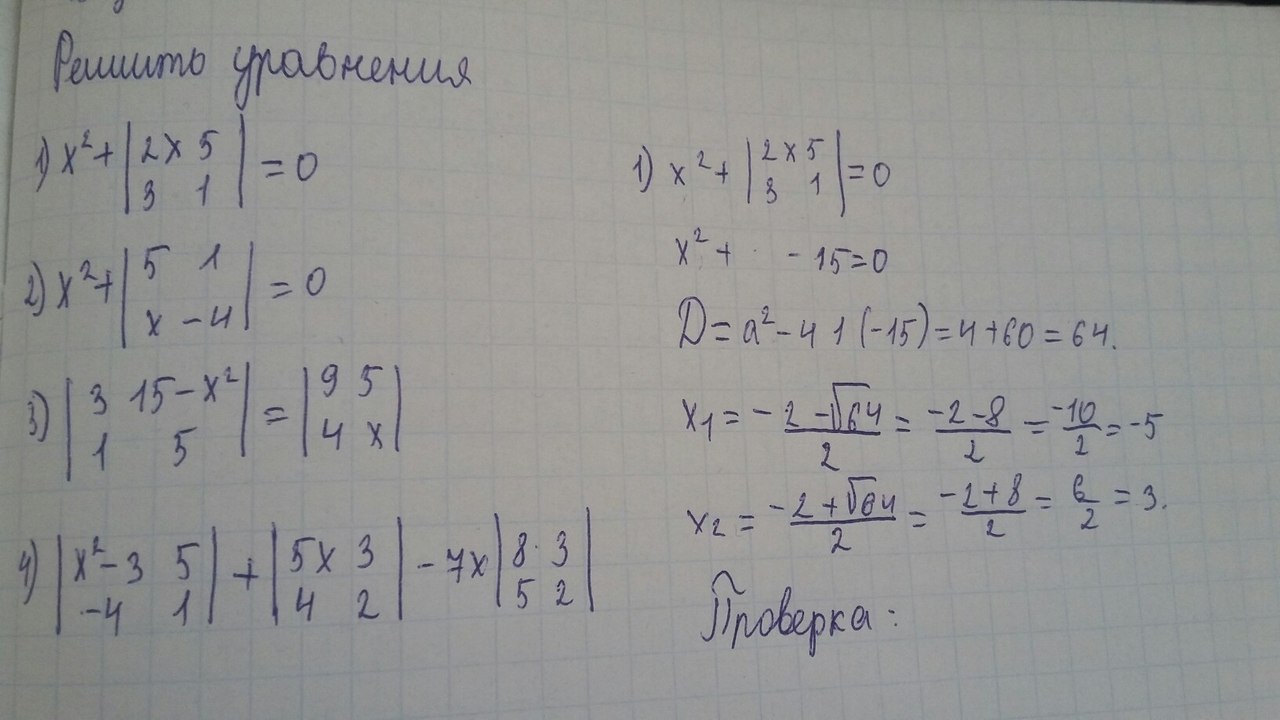 Решить уравнения
1) x² + |2x 5|
|3 1| = 0
2) x² + |5 1|
|x -4| = 0
3) |3 15-x²|
|1 5| = |9 5|
|4 x|
4) |x²-3 5|
|-4 1| + |5x 3|
|4 2| - 7x |8 3|
|5 2|
1) x² + |2x 5|
|3 1| = 0
x² + - 15 = 0
D = a² - 4 1 (-15) = 4 + 60 = 64.
x₁ = - 2 - √64 / 2 = -2-8 / 2 = -10 / 2 = -5
x₂ = -2 + √64 / 2 = -2+8 / 2 = 6 / 2 = 3.
Проверка: